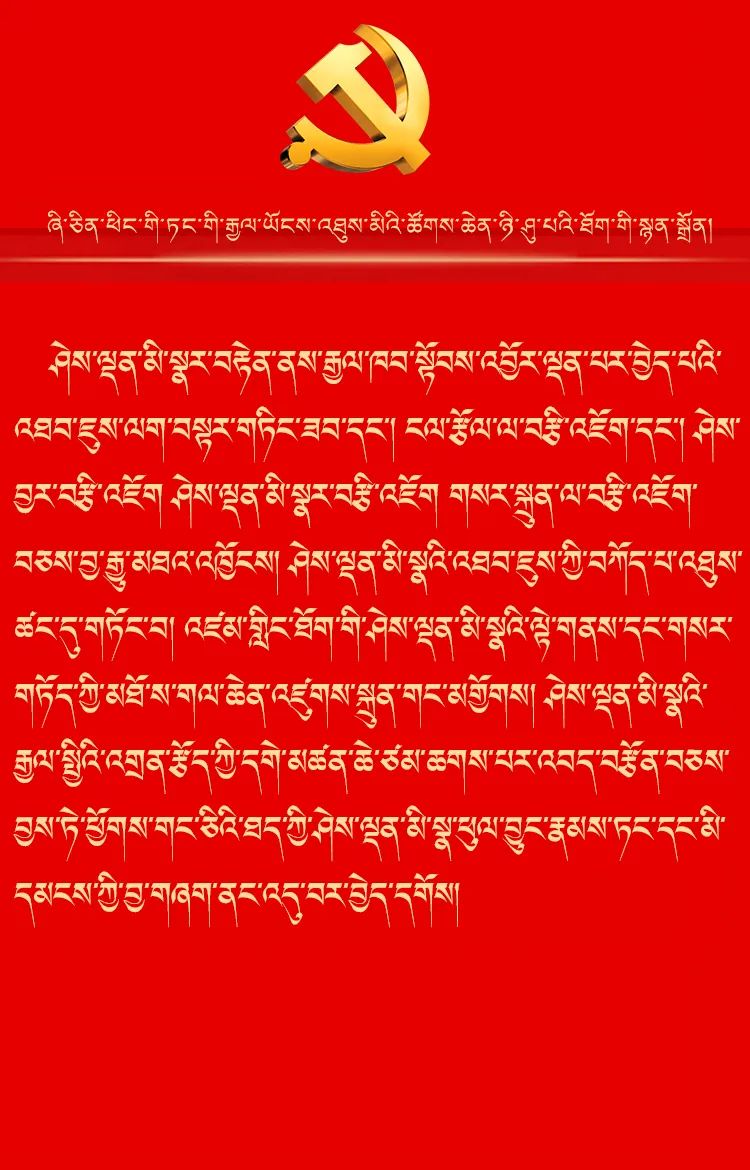 ཞི་ཅིན་ཕིང་གི་ཏང་གི་རྒྱལ་ཡོངས་འཐུས་མིའི་ཚོགས་ཆེན་ཉི་ཤུ་པའི་ཐོག་གི་སྙན་སྒྲོན།
ཤེས་ལྡན་མི་སྣར་བརྟེན་ནས་རྒྱལ་ཁབ་སྟོབས་འབྱོར་ལྡན་པར་བྱེད་པའི་
འཐབ་ཇུས་ལག་བསྟར་གཏིང་ཟབ་དང་། ངལ་རྩོལ་ལ་བརྩི་འཇོག་དང་། ཤེས་
བྱར་བརྩི་འཇོག ཤེས་ལྡན་མི་སྣར་བརྩི་འཇོག གསར་སྐྲུན་ལ་བརྩི་འཇོག་
བཅས་བྱ་རྒྱུ་མཐའ་འཁྱོངས། ཤེས་ལྡན་མི་སྣའི་འཐབ་ཇུས་ཀྱི་བཀོད་པ་འཐུས་
ཚང་དུ་གཏོང་བ། འཛམ་གླིང་ཐོག་གི་ཤེས་ལྡན་མི་སྣའི་ལྟེ་གནས་དང་གསར་
གཏོད་ཀྱི་མཐོ་ས་གལ་ཆེན་འཛུགས་སྐྲུན་གང་མགྱོགས། ཤེས་ལྡན་མི་སྣའི་
རྒྱལ་སྤྱིའི་འགྲན་རྩོད་ཀྱི་དགེ་མཚན་ཆེ་ཙམ་ཆགས་པར་འབད་བརྩོན་བཅས་
བྱས་ཏེ་ཕྱོགས་གང་ཅིའི་ཐད་ཀྱི་ཤེས་ལྡན་མི་སྣ་ཕུལ་བྱུང་རྣམས་ཏང་དང་མི་
དམངས་ཀྱི་བྱ་གཞག་ནང་འདུ་བར་བྱེད་དགོས།